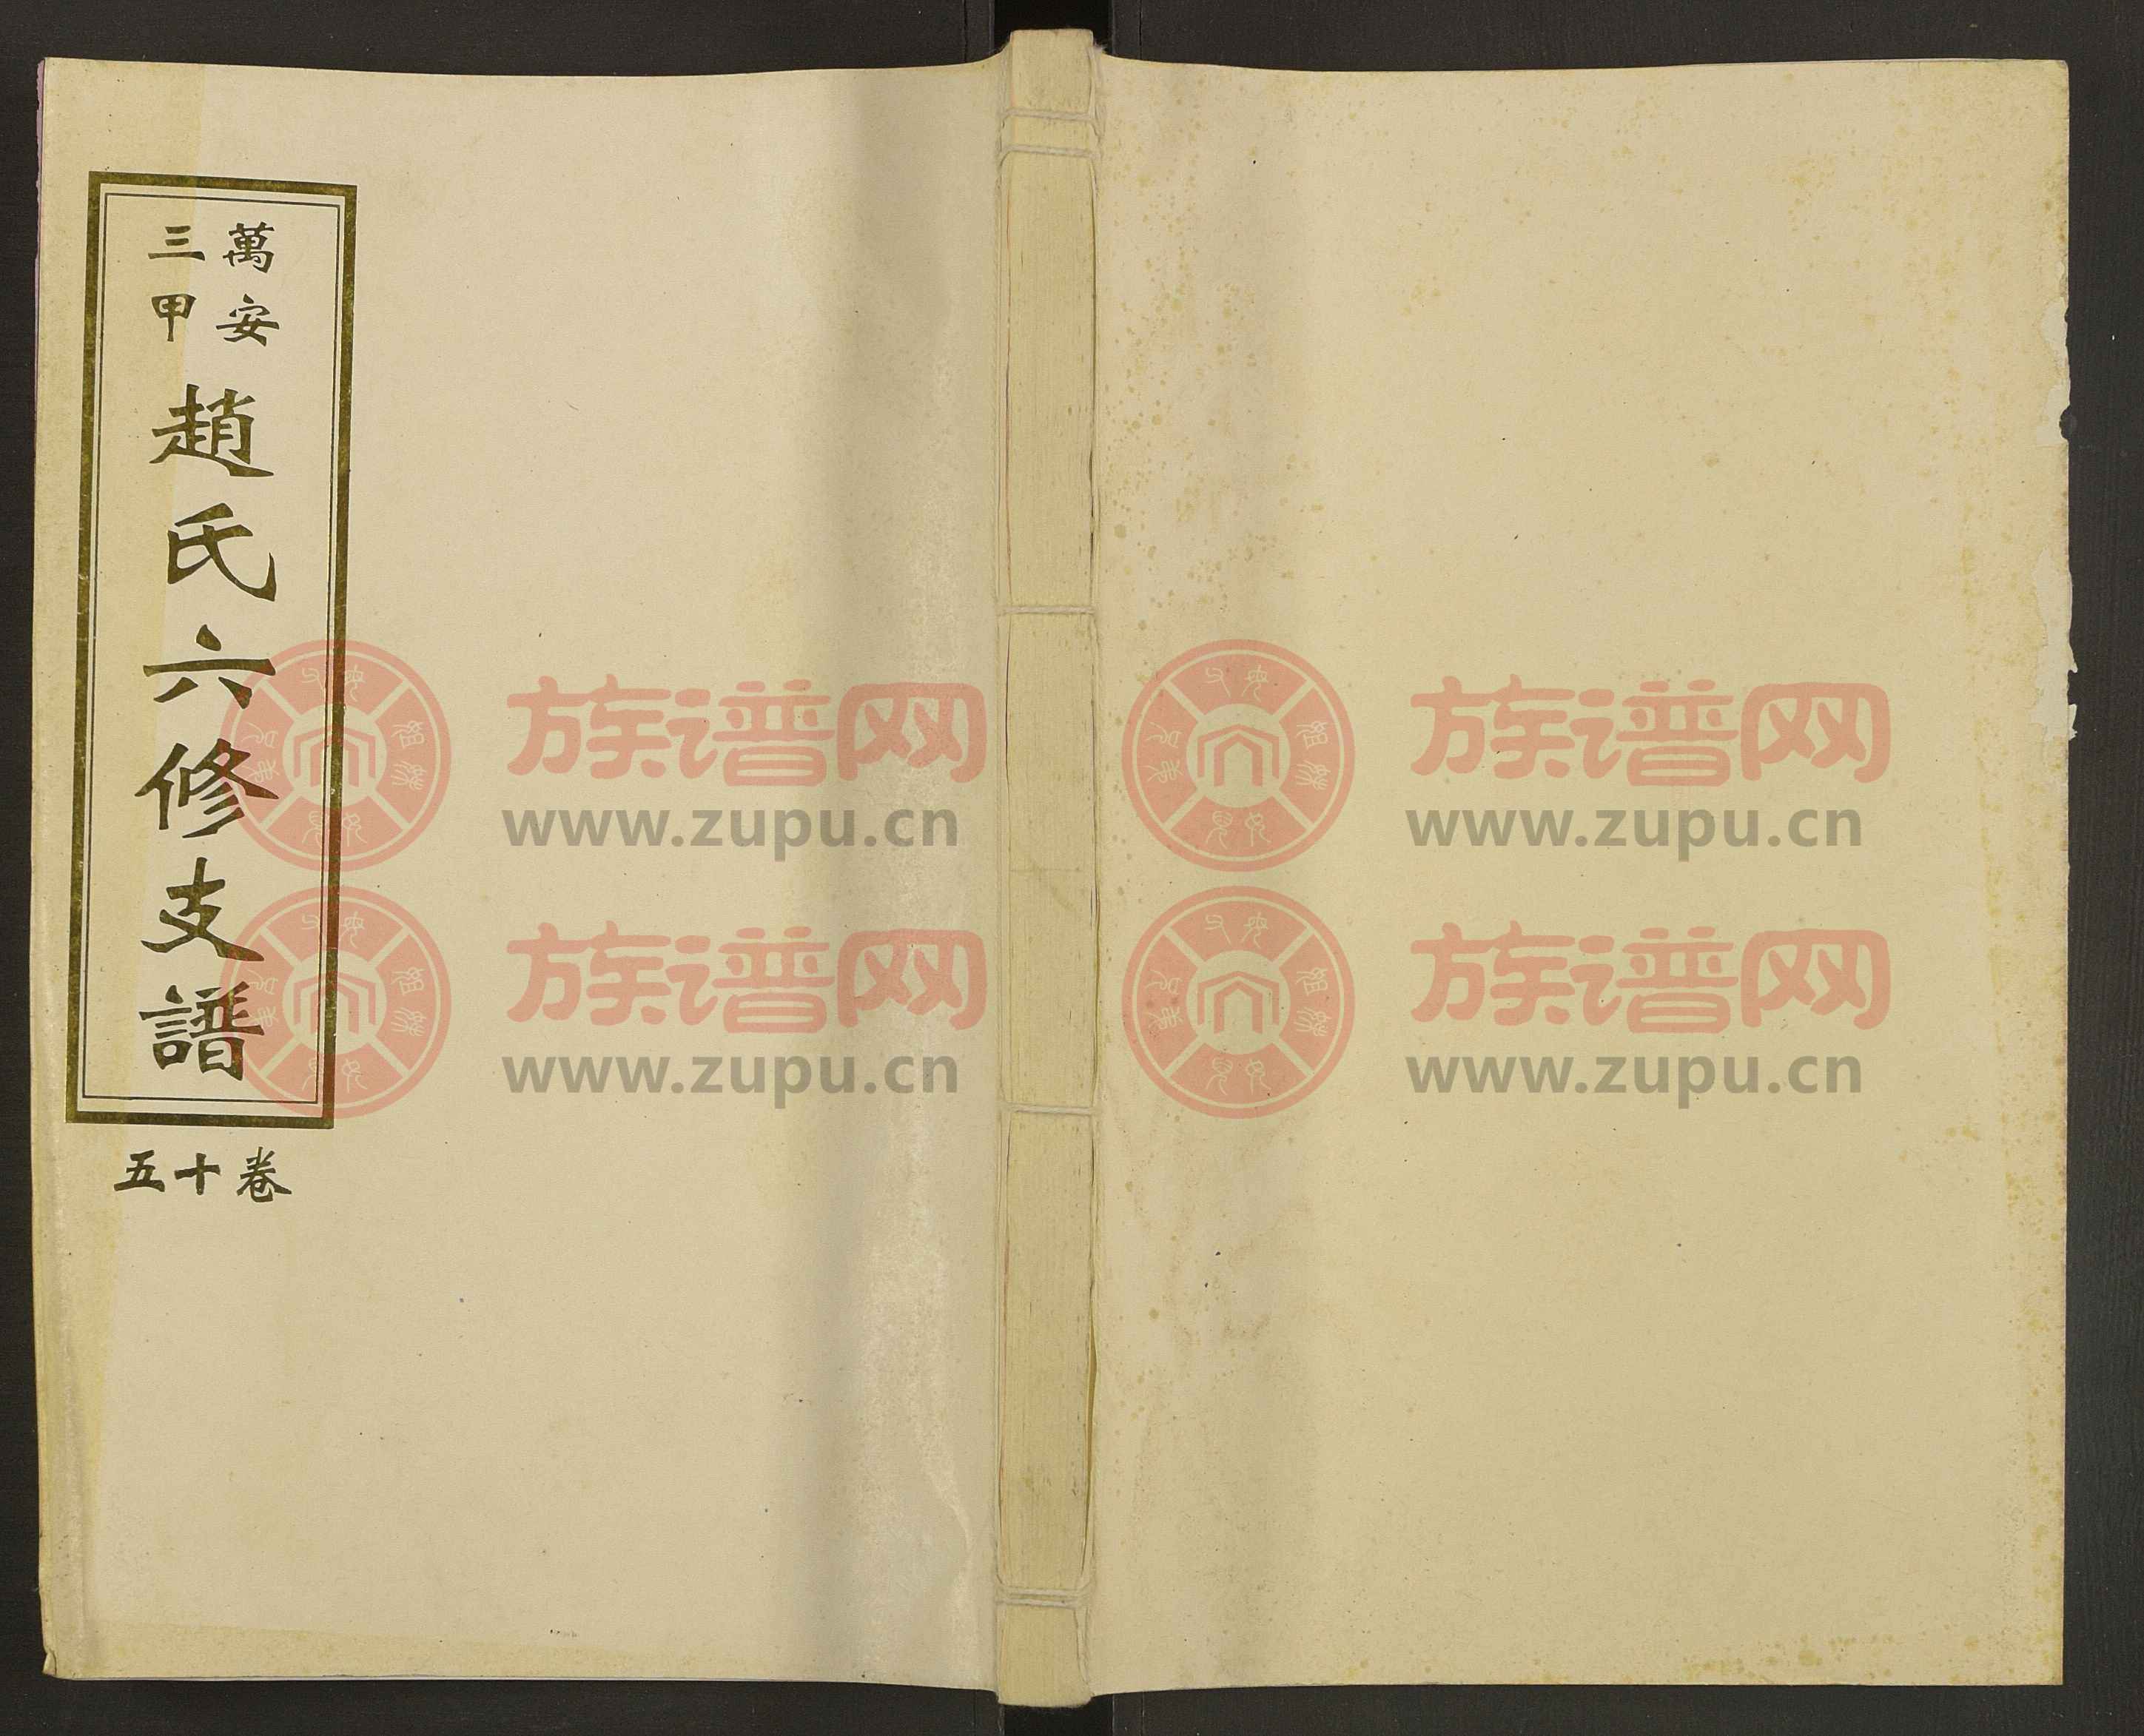 萬安
三甲
趙氏六修支譜
卷十五
族谱网
www.zupu.cn
族谱网
www.zupu.cn
族谱网
www.zupu.cn
族谱网
www.zupu.cn